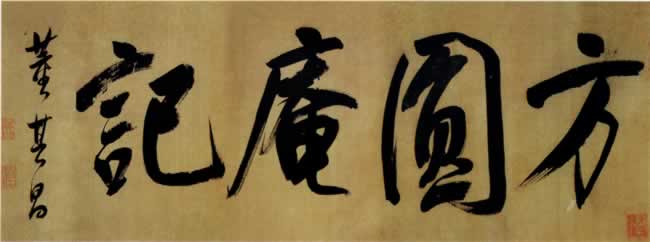 方圓庵記
董其昌